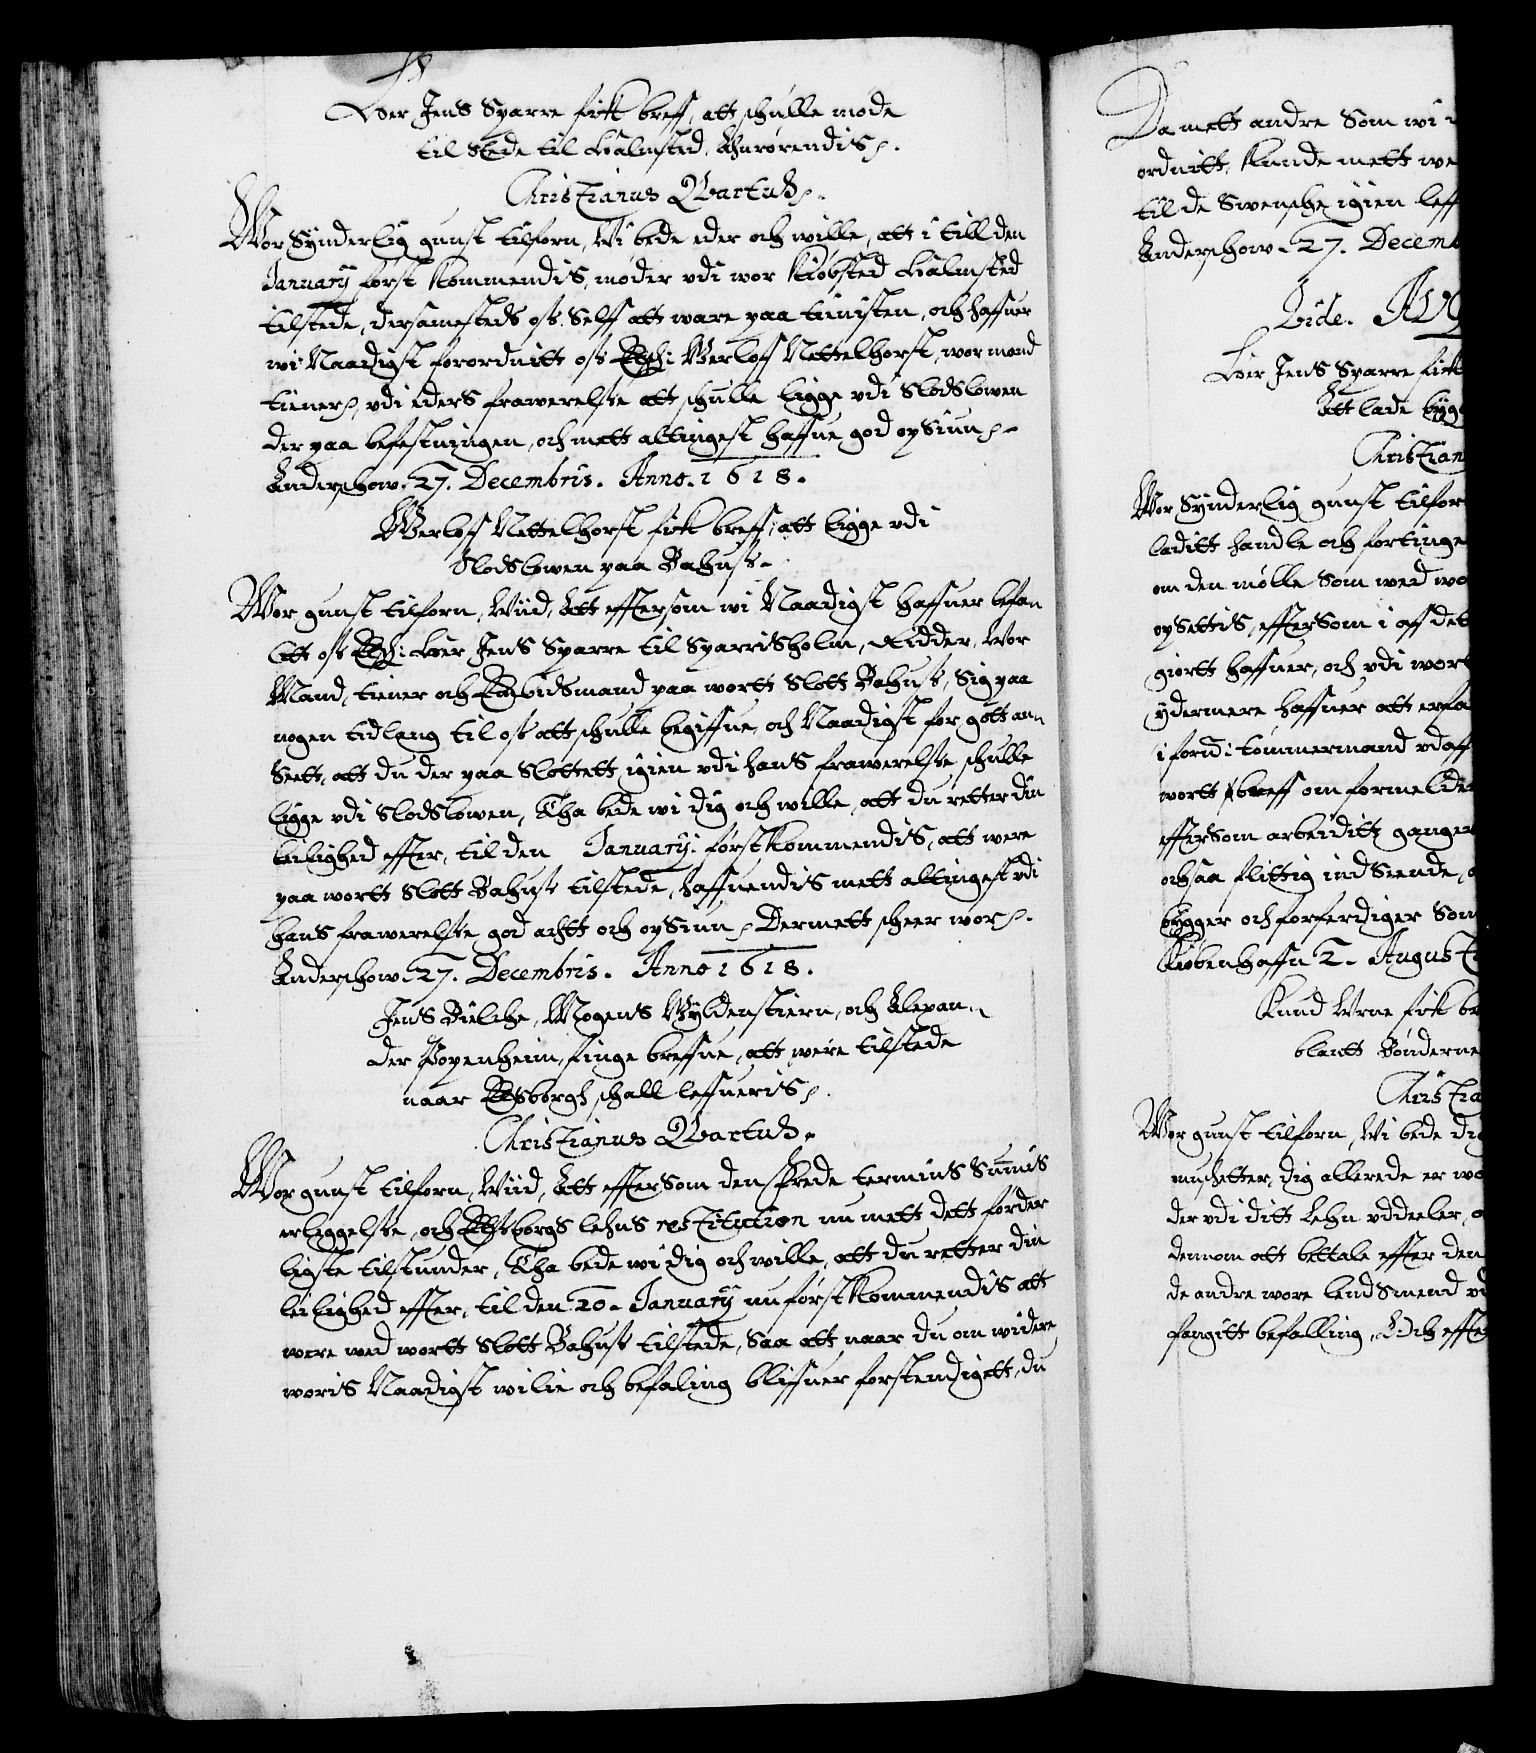 Her Jens Sparre fick breff, att schulle møde
til stede til Halmsted, Anrørendis.
Christianus Qvartus.
Wor Synderlig gunst tilforn, Wi bede eder och wille, att i till den
January først Kommendis, møder vdi wor Kiøbsted Halmsted
tilstede, dersamesteds oss Selff att ware paa tienisten, och haffuer
wi Naadigst forordnitt oss Elsch: Werloff Nettelhorst, wor mand
tiener, vdi eders frawerelsse att schulle ligge vdi Slodslowen
der paa befestningen, och mett altingest haffue god opSiun.
Anderschow. 27. Decembris. Anno. 1618.
Werloff Nettelhorst fick breff, att ligge vdi
Slodslowen paa Bahuss.
Wor gunst tilforn, Wiid, Att efftersom wi Naadigst haffuer befa-
litt oss Elsch: Her Jens Sparre til Sparrisholm, Ridder, Wor
Mand, tiener och Embidsmand paa wortt Slott Bahuss, Sig paa
nogen tidlang til oss att schulle begiffue, och Naadigst for gott an-
Seett, att du der paa Slottett igien vdi hans frawerelsse schulle
ligge vdi Slodslowen, Tha bede wi dig och wille, att du retter din
leilighed effter, til den January: førstkommendis, att were
paa wortt Slott Bahuss tilstede, haffuendis mett altingest vdi
hans frawerelsse god achtt och opSiun. Dermett scheer wor.
Anderschow. 27. Decembris. Anno 1618.
Jens Bielche, Mogens Gyldenstiern, och Alexan-
der Papenheim, finge breffue, att were tilstede
naar Elsborgh schall leffueris.
Christianus Qvartus.
Wor gunst tilforn, Wiid, Att efftersom den sidste termins Summis
erleggelsse, och Elssborgs lehns restitution nu mett dett forder
ligste tilstunder, Tha bede wi dig och wille, att du retter din
leilighed effter, til den 20. January nu førstkommendis att
were wed wortt Slott Bahuss tilstede, Saa att naar du om widere
woris Naadigst wilie och befaling bliffuer forstendigett, du
Da mett andre Som wi
ordnitt, Kunde mett
til de Swensche igien
Anderschow. 27.
Vide.
Her Jens Sparre
Att lade
Wor Synderlig gunst
laditt handle och
om den mølle Som wed
opSettis, effterSom i aff
giortt haffuer, och vdi
ydermere haffuer att
i ford: tømmermand
wortt breff om
effterSom arbeiditt
ochsaa flittig ind Seende,
bygger och forferdiger
Kiøbenhaffn 2.
Knud Wrne fick
blantt Bønderne
Wor gunst tilforn, Wi bede
muschetter, dig allerede er
der vdi ditt Lehn vddeeler,
dennom att bettale effter den
de andre wore lendSmend
fangitt befalling, Och